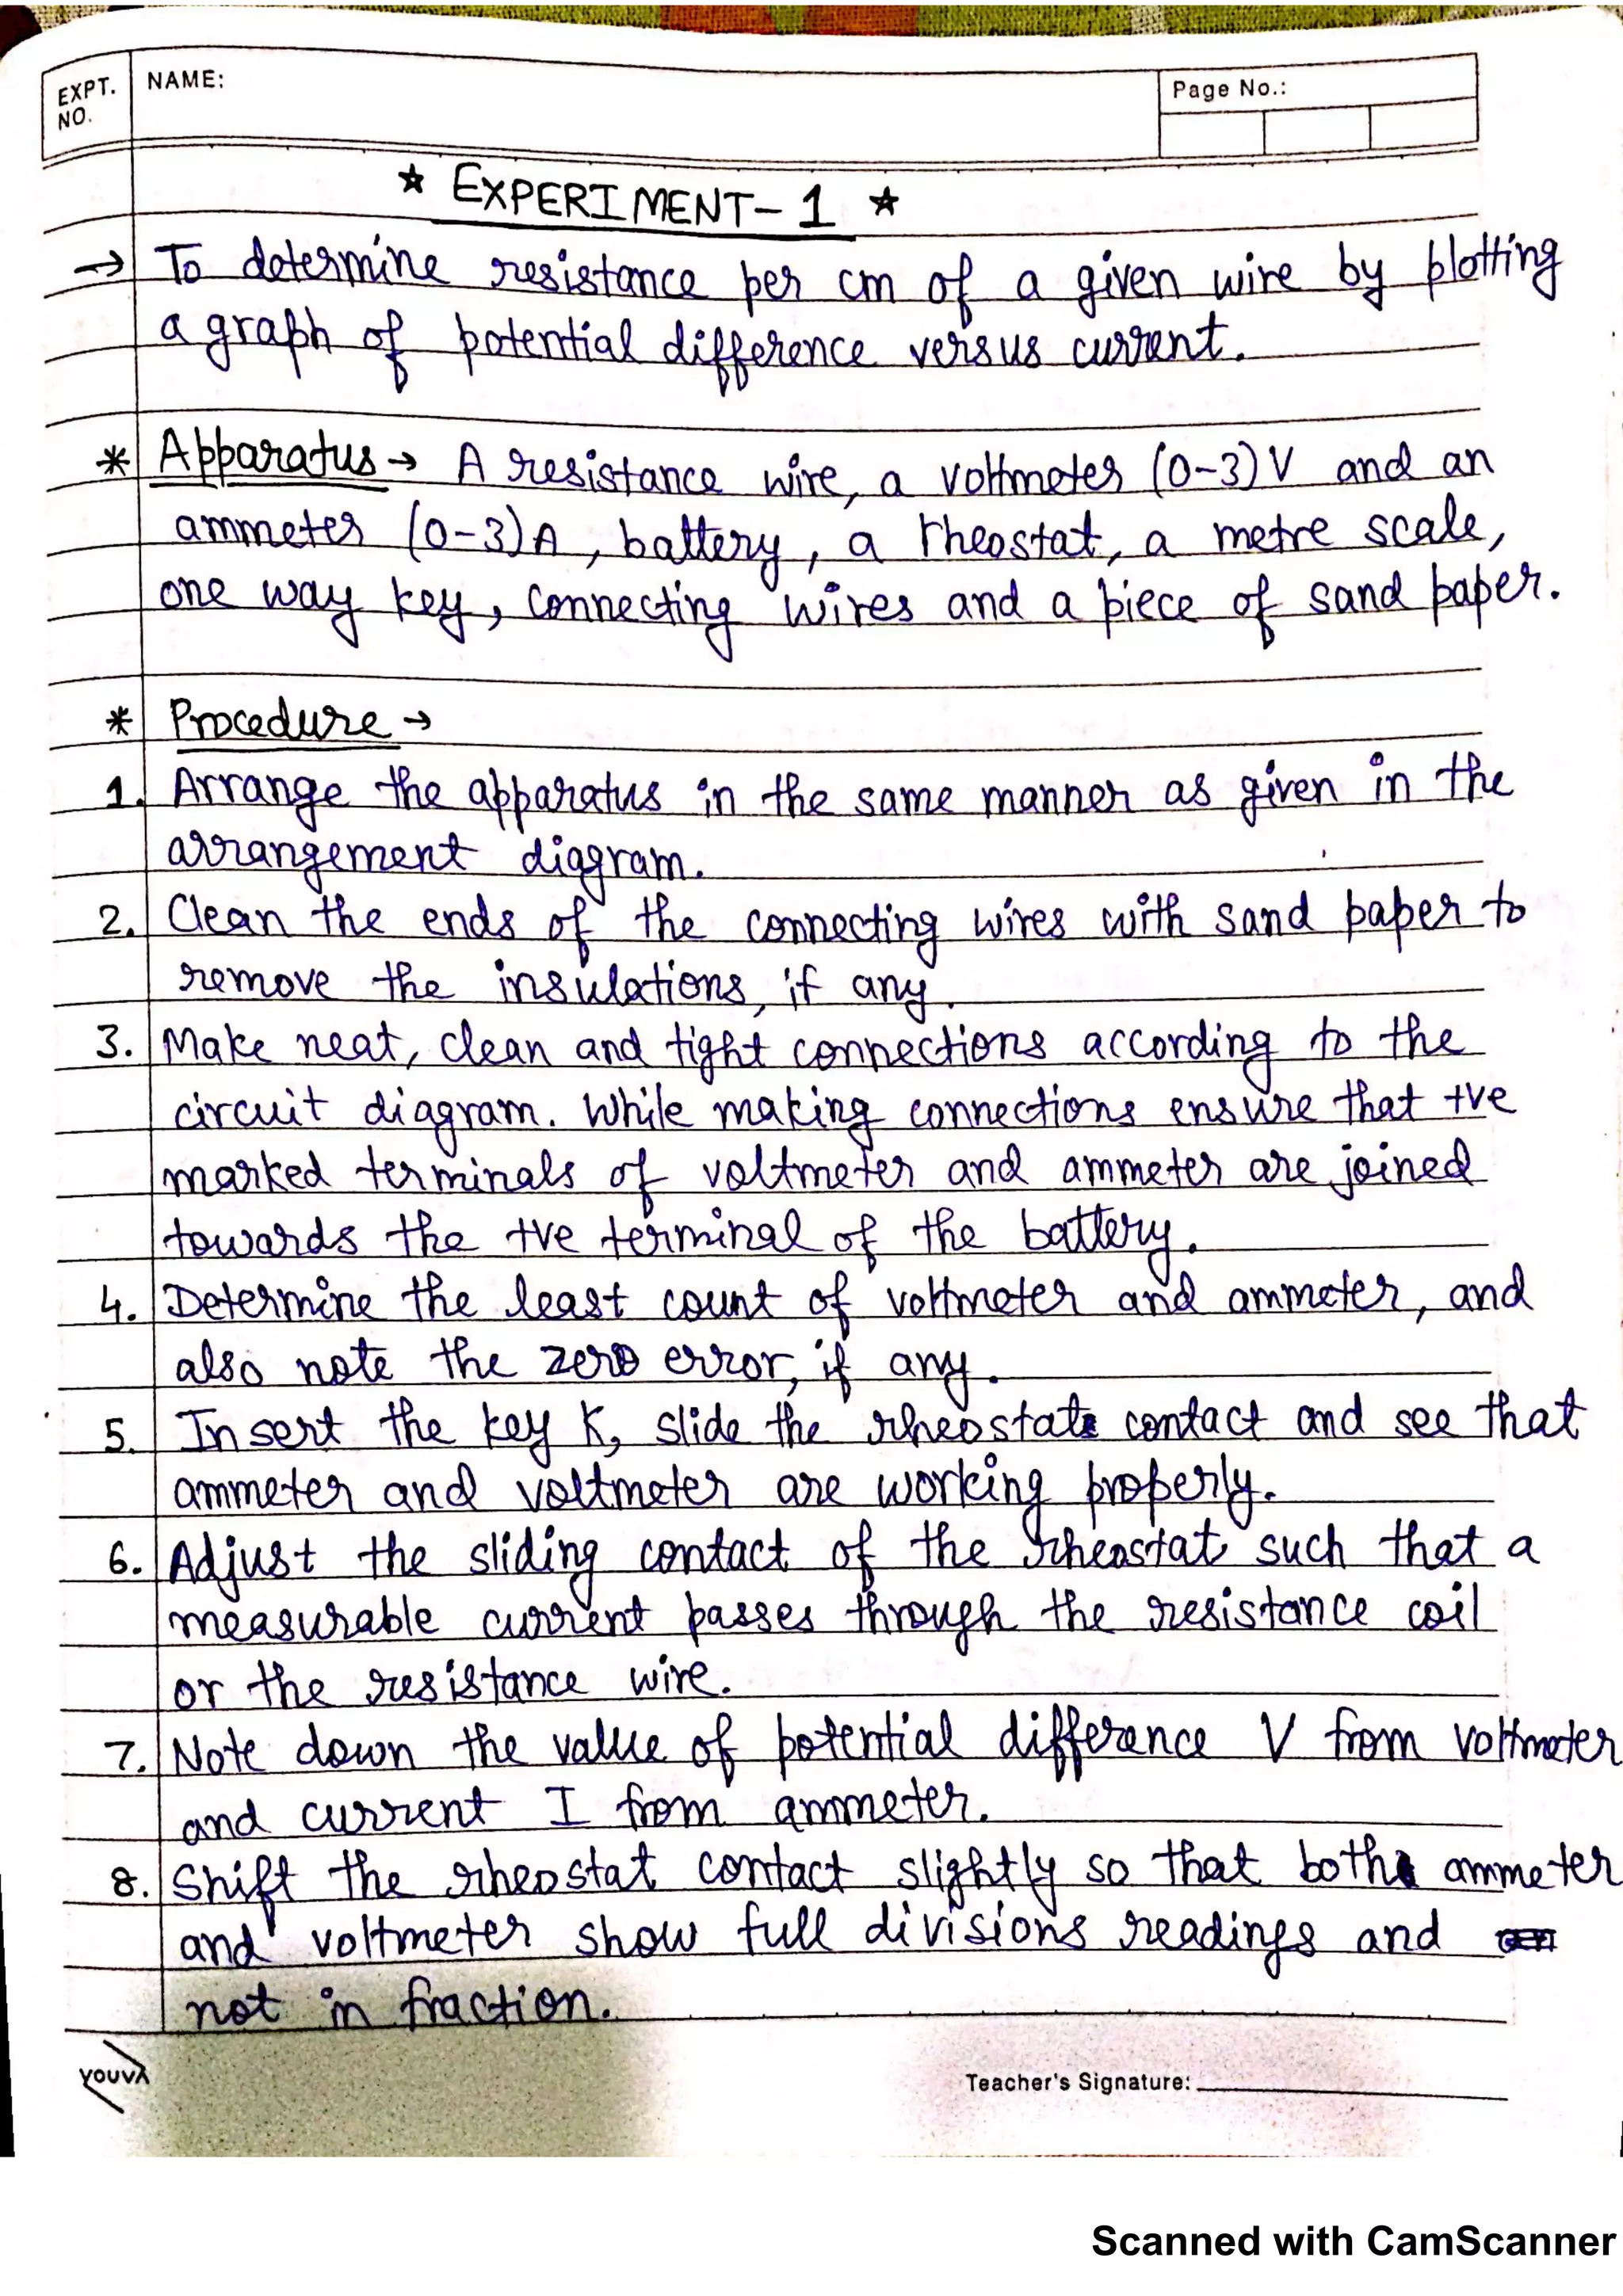 EXPT. NO.
NAME:
Page No.:
* EXPERIMENT-1 *
→ To determine resistance per cm of a given wire by plotting
a graph of potential difference versus current.
* Apparatus → A resistance wire, a voltmeter (0-3)V and an
ammeter (0-3)A, battery, a rheostat, a metre scale,
one way key, connecting wires and a piece of sand paper.
* Procedure →
1. Arrange the apparatus in the same manner as given in the
arrangement diagram.
2. Clean the ends of the connecting wires with sand paper to
remove the insulations, if any.
3. Make neat, clean and tight connections according to the
circuit diagram. While making connections ensure that +ve
marked terminals of voltmeter and ammeter are joined
towards the +ve terminal of the battery.
4. Determine the least count of voltmeter and ammeter, and
also note the zero error, if any.
5. Insert the key K, slide the rheostat contact and see that
ammeter and voltmeter are working properly.
6. Adjust the sliding contact of the rheostat such that a
measurable current passes through the resistance coil
or the resistance wire.
7. Note down the value of potential difference V from voltmeter
and current I from ammeter.
8. Shift the rheostat contact slightly so that both ammeter
and voltmeter show full divisions readings and
not in fraction.
YOUVA
Teacher's Signature:
Scanned with CamScanner